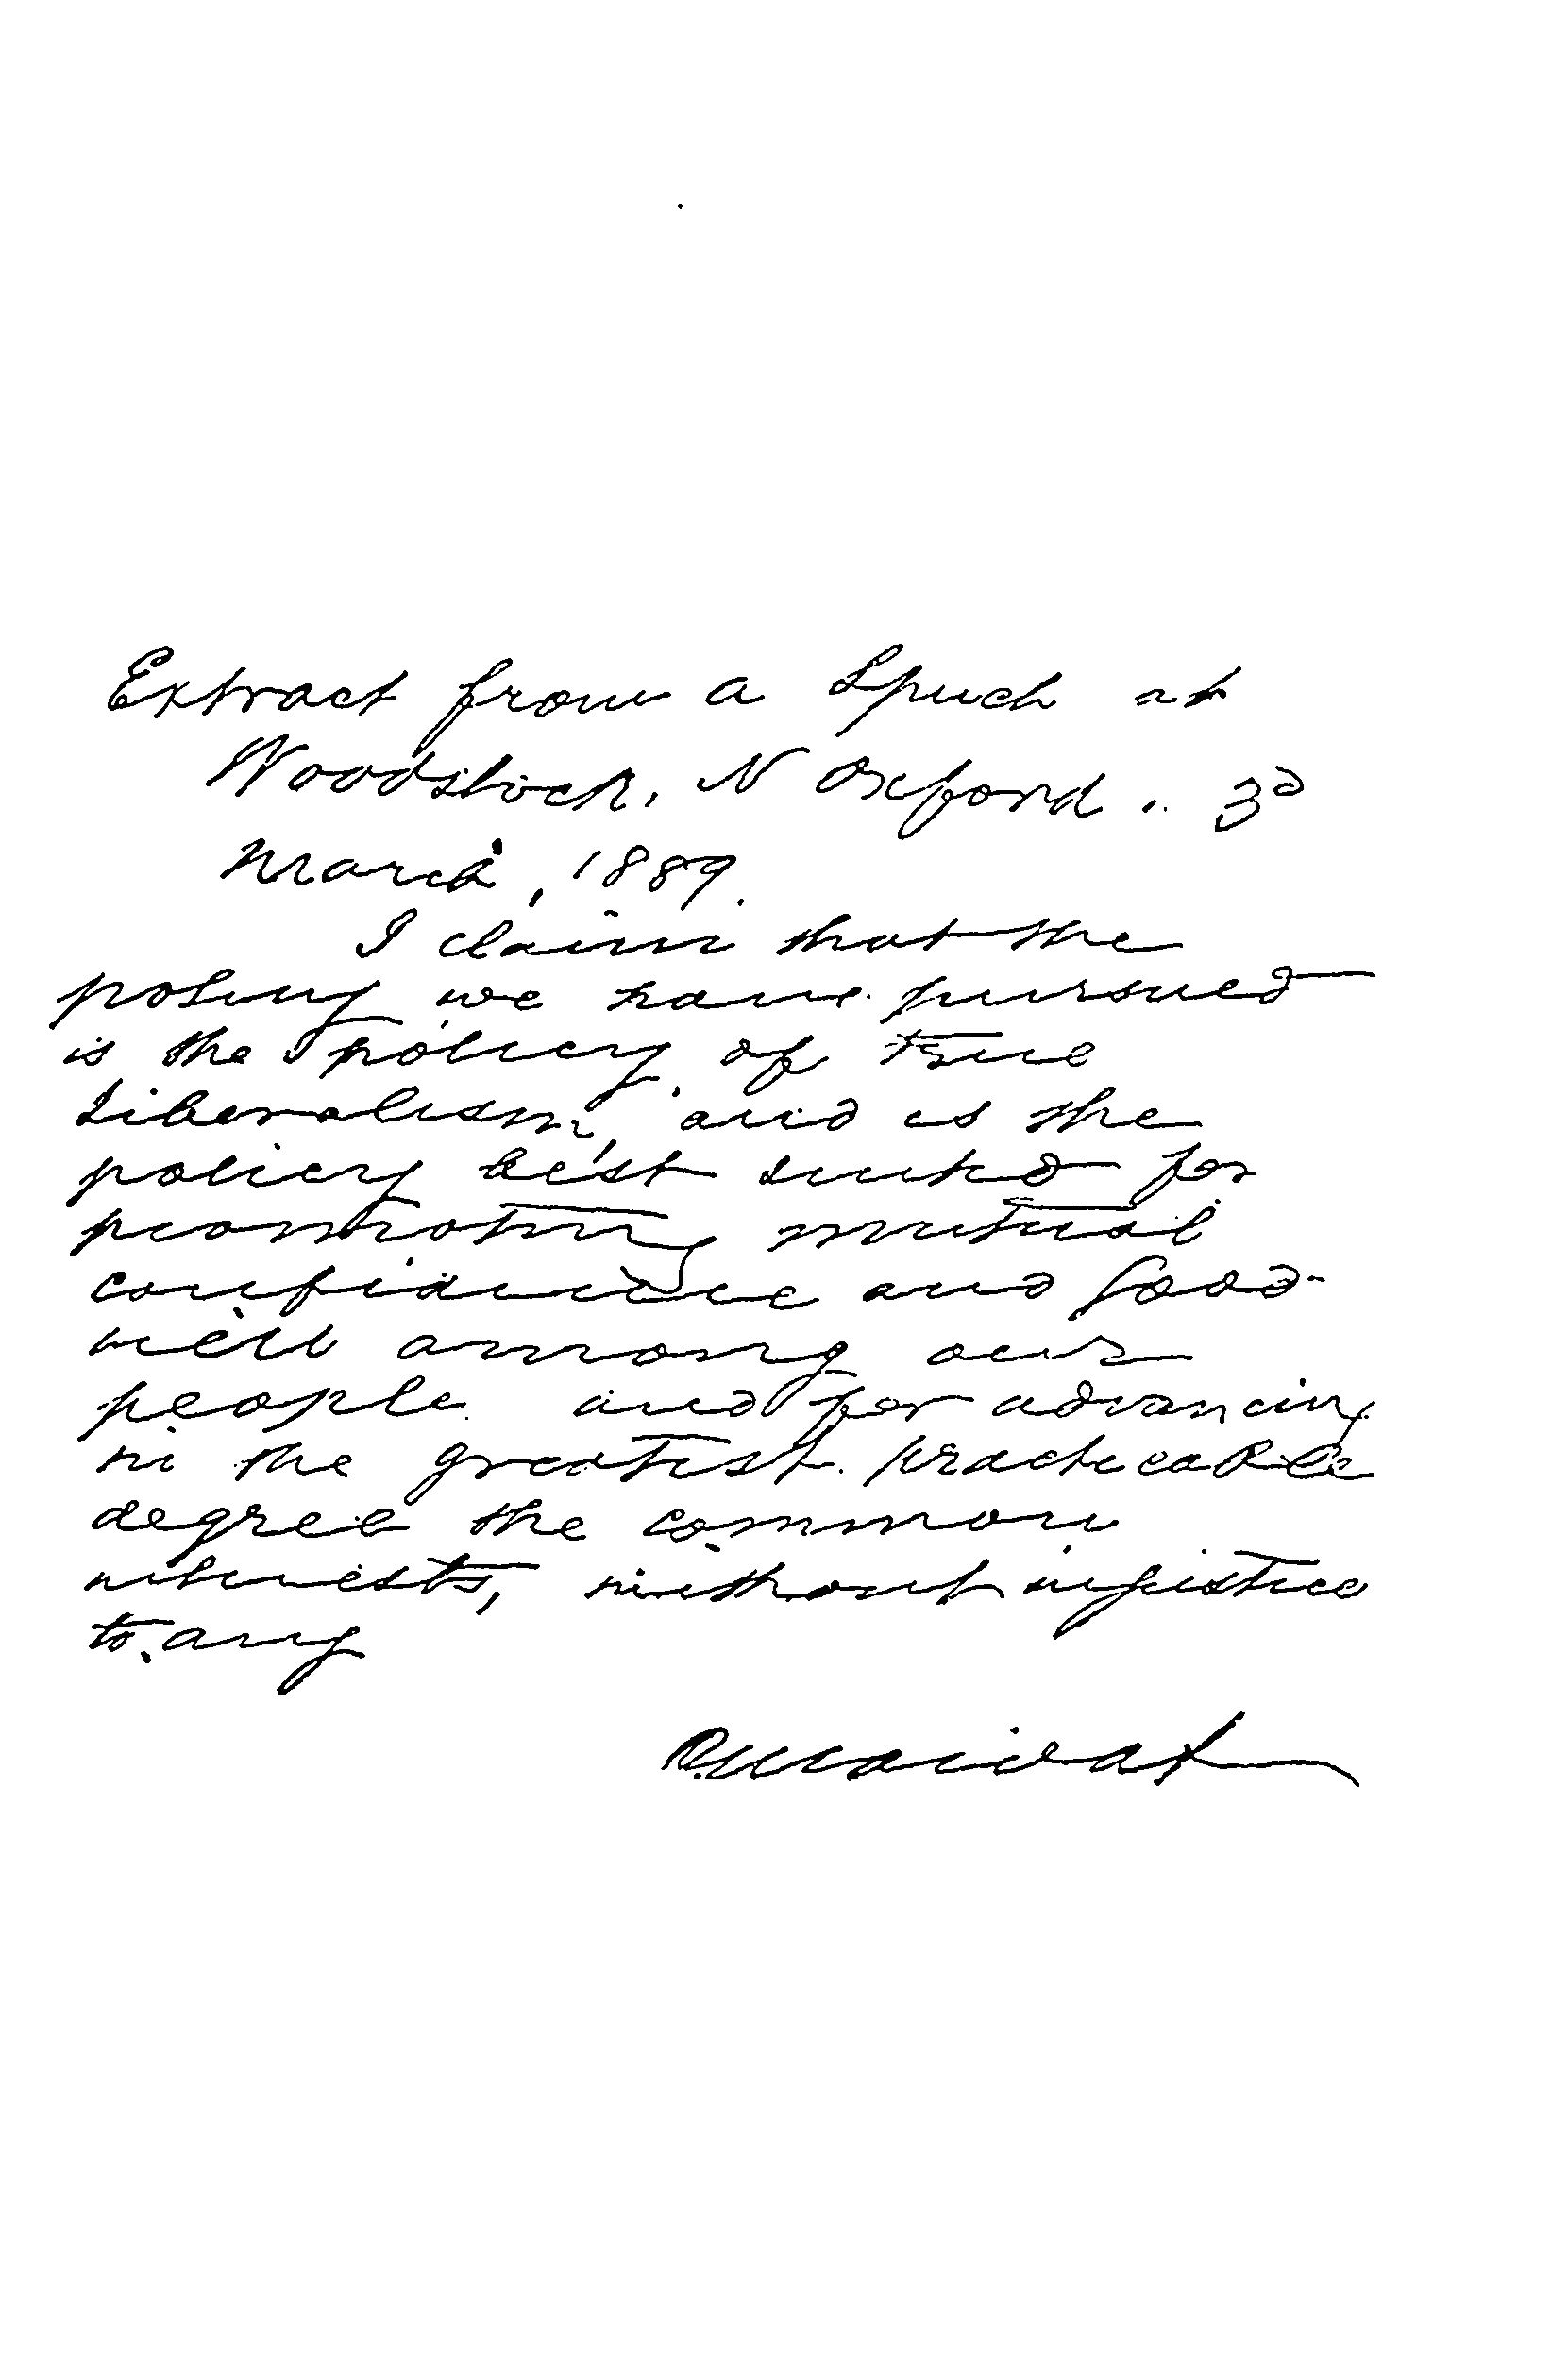 Extract from a Speech at
Woodstock, N Oxford. 3d
March, 1889.
I claim that the
policy we have pursued
is the policy of true
Liberalism, and is the
policy best suited for
promoting mutual
confidence and Good-
will among our
people and for advancing
in the greatest practicable
degree the common
interests, without injustice
to any
O. Mowat